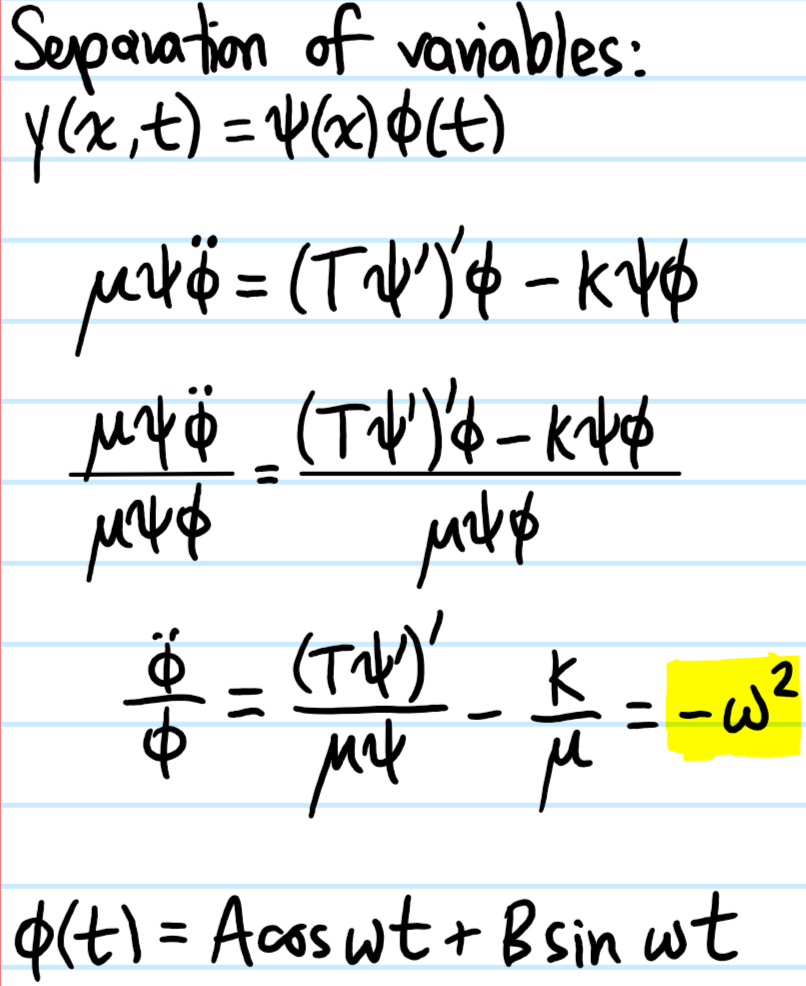 Separation of variables:
y(x,t) = ψ(x)ϕ(t)
μψϕ̈ = (Tψ')'ϕ − kψϕ
μψϕ̈/μψϕ = ((Tψ')'ϕ − kψϕ)/μψϕ
ϕ̈/ϕ = (Tψ')'/μψ − k/μ = −ω²
ϕ(t) = A cos ωt + B sin ωt